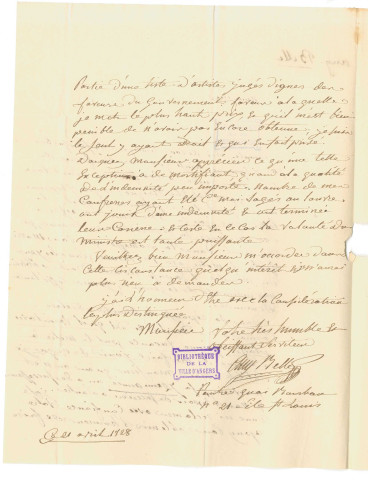 Partie d'une liste d'artistes jugés dignes des
faveurs du Gouvernement, faveur à la quelle
je met le plus haut prix et qu'il m'est bien
penible de n'avoir pas encore obtenue, je suis
le seul y ayant droit
Daignez, Monsieur apprécier ce qu'une telle
Exception a de mortifiant, quand à la quotité
de l'indemnité peu importe. Nombre de mes
Confrères ayant été comme moi logés au louvre,
ont jouis d'une indemnité et ont terminée
leur Carriere la volonté du
Ministre est toute puissante.
Veuillez bien Monsieur m'accorder dans
Cette circonstance quelqu'intérêt
plus rien à demander
j'ai l'honneur d'être avec la Considération
la plus distinguée
Monsieur Votre très humble et
obéissant serviteur
Aug Belle
BIBLIOTHÈQUE
DE LA
VILLE D'ANGERS
Quai Bourbon
n° 21 isle St Louis
Ce 21 avril 1828